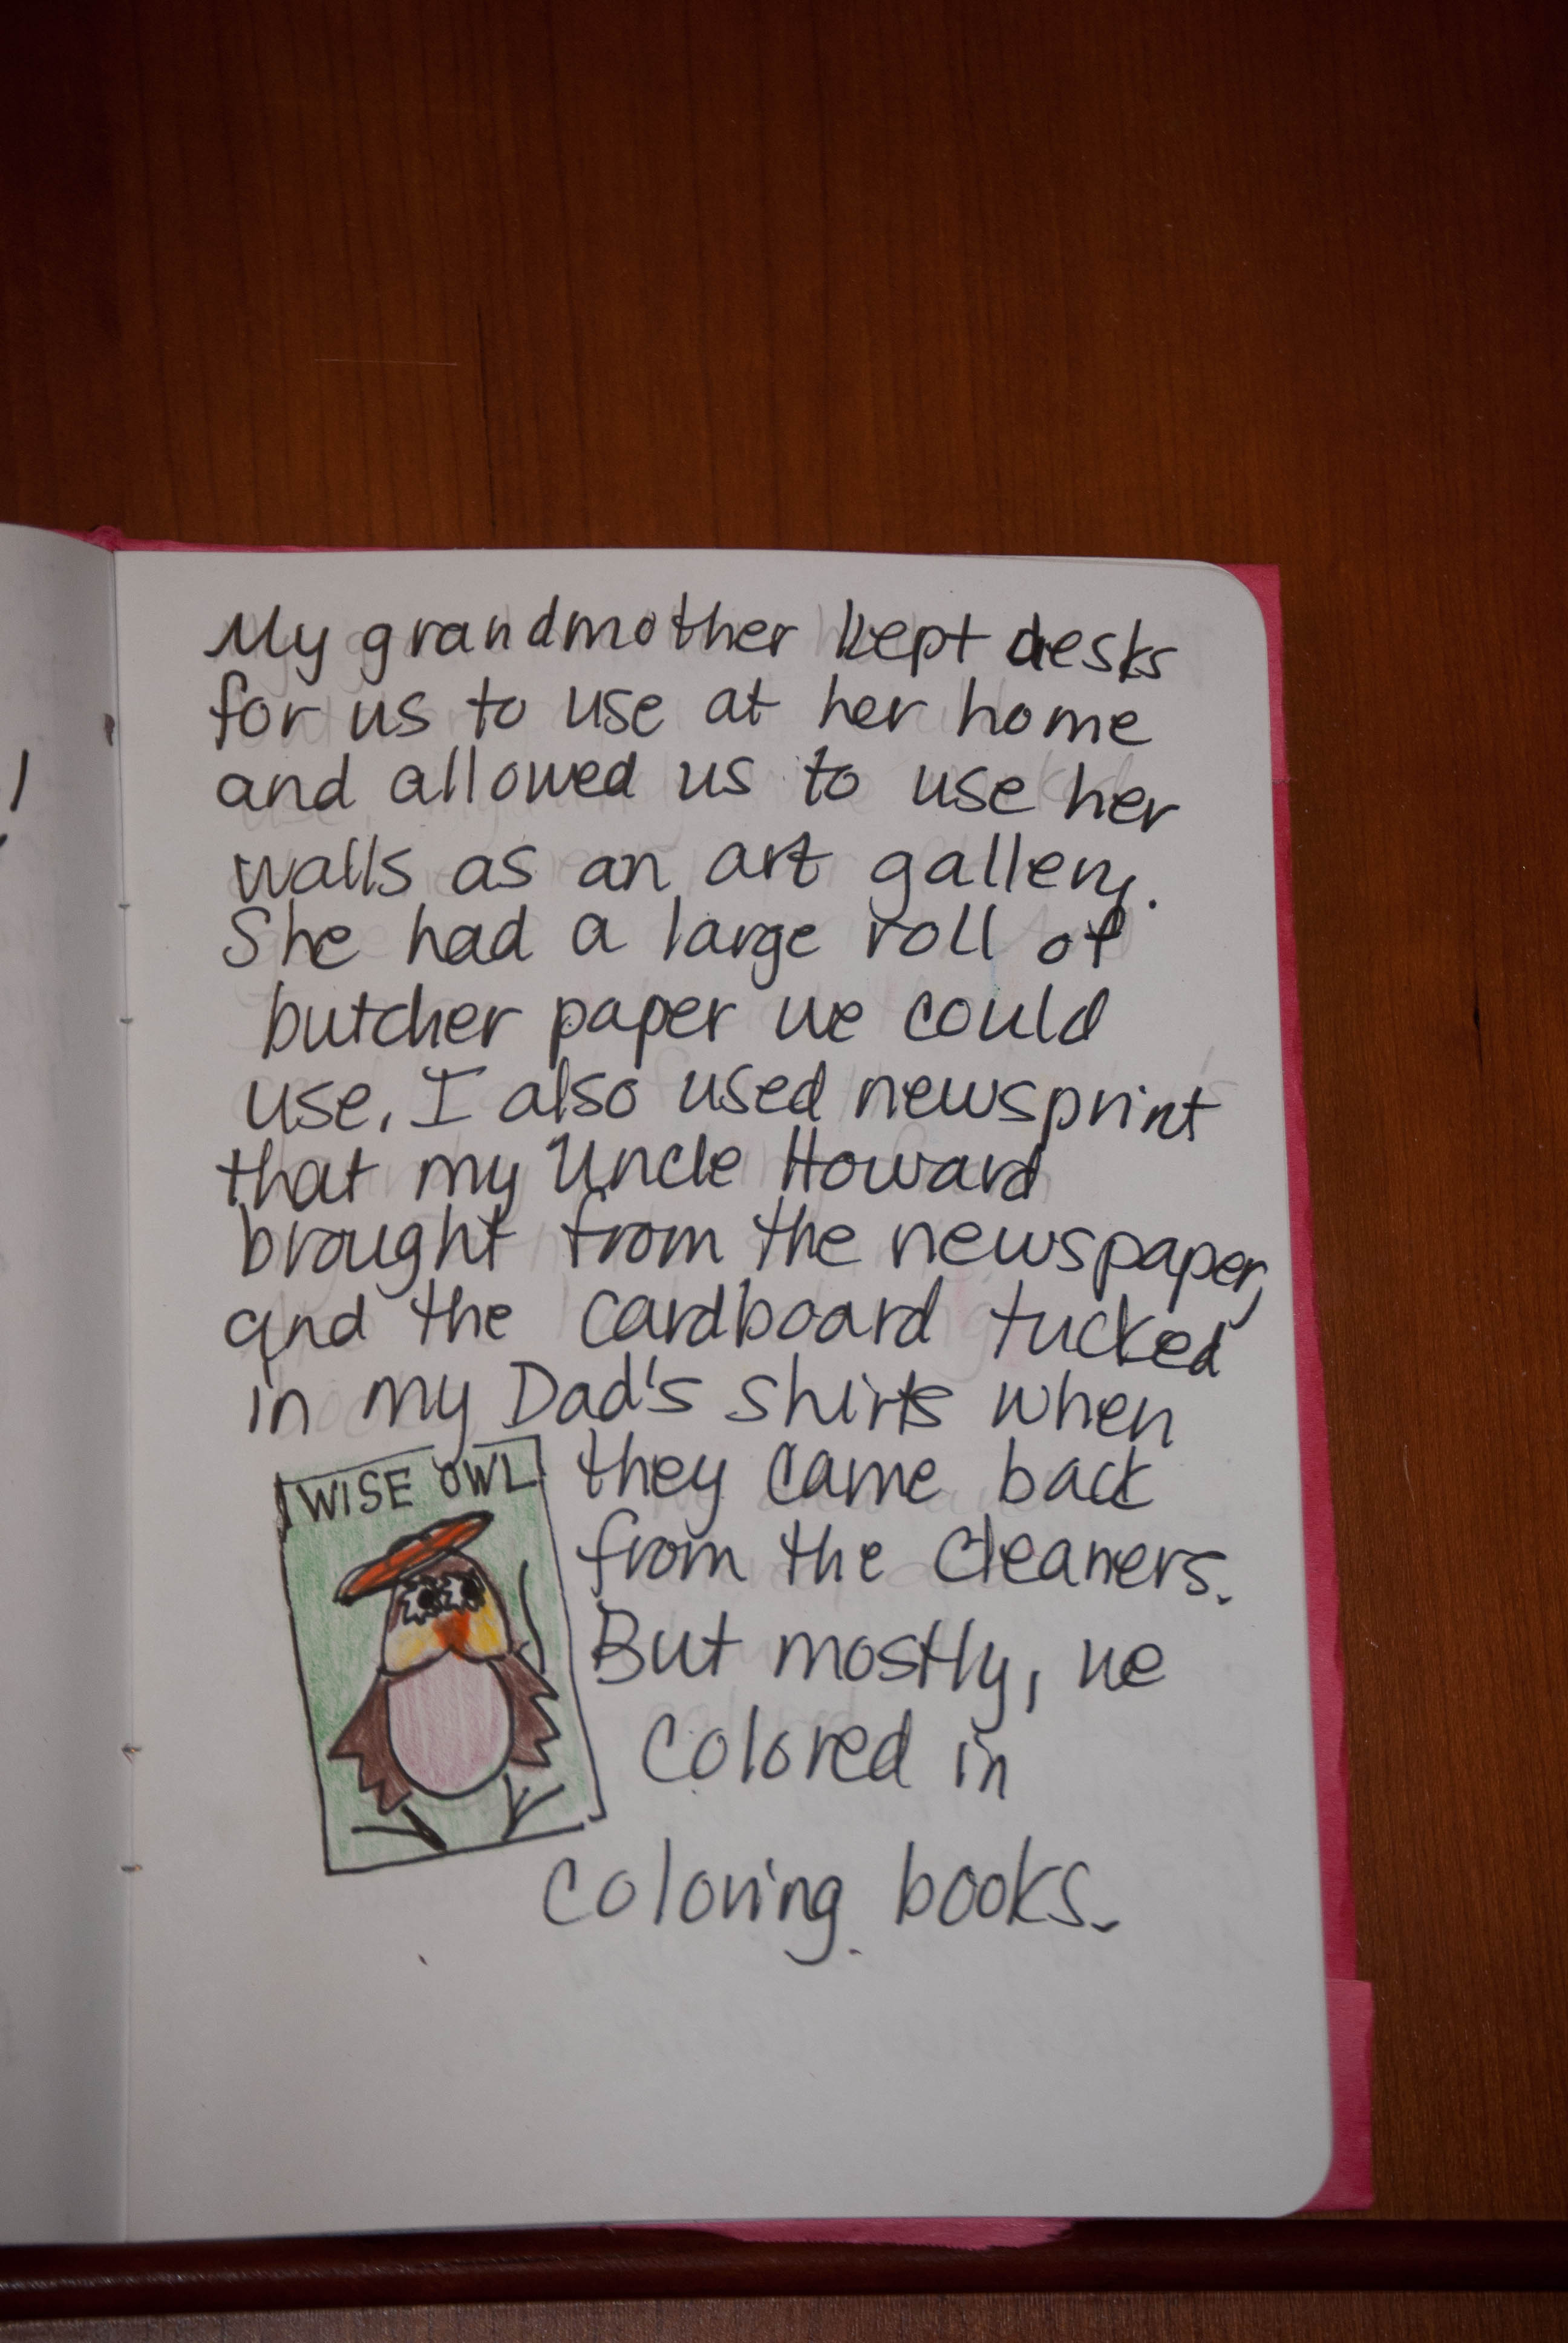 My grandmother kept desks
for us to use at her home
and allowed us to use her
walls as an art gallery.
She had a large roll of
butcher paper we could
use. I also used newsprint
that my Uncle Howard
brought from the newspaper,
and the cardboard tucked
in my Dad's shirts when
they came back
from the cleaners.
But mostly, we
colored in
coloring books.
WISE OWL